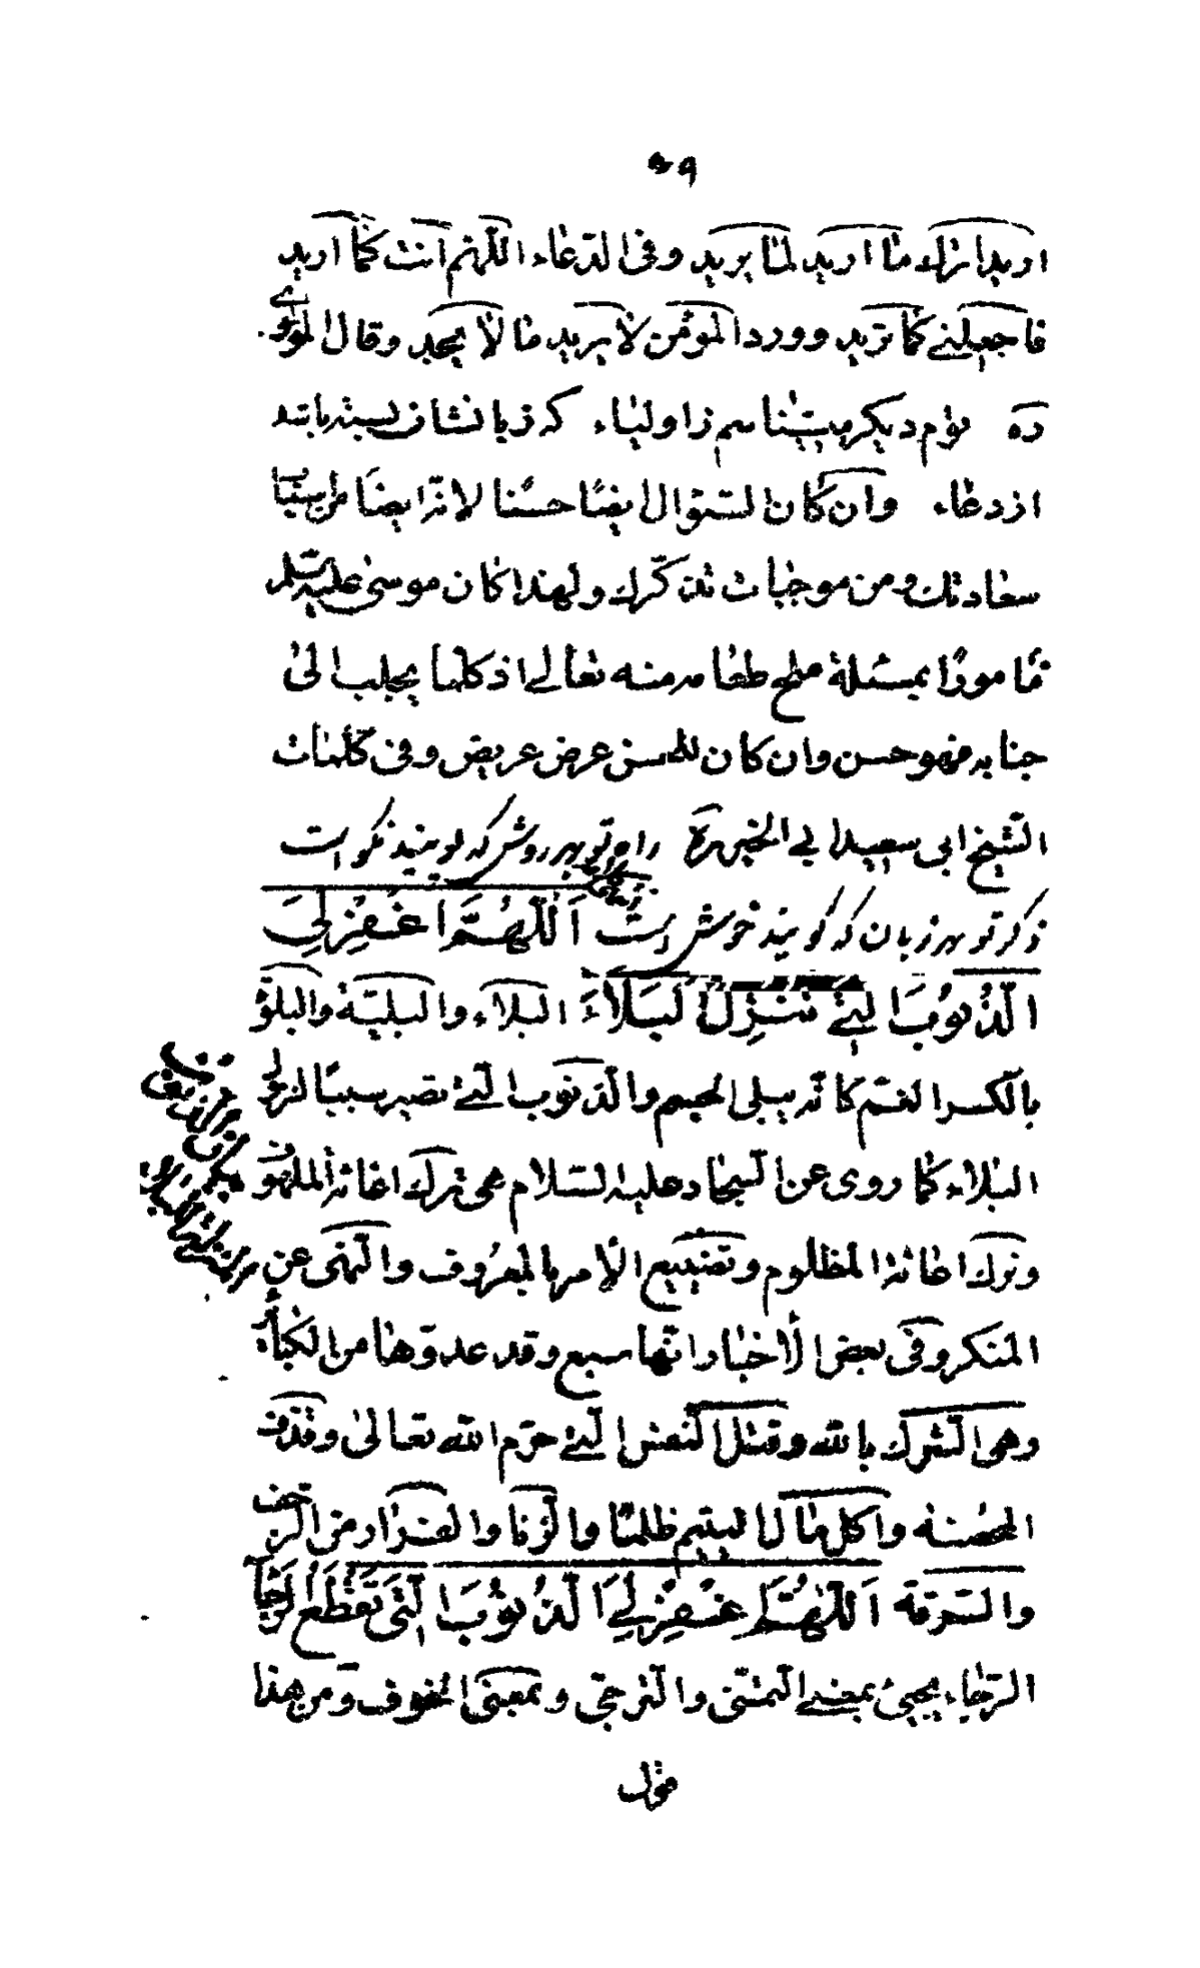 ٥٩
اريد اترك ما اريد لما يريد وفى الدّعاء اللّهم انت كما اريد
فاجعلنى كما تريد وورد المؤمن لا يريد ما لا يجد وقال المولوى
ره قوم ديكر ميشناسم ز اولياء كه زبانشان بسته باشد
از دعاء وان كان السّؤال ايضًا حسنا لانّه ايضا من اسباب
سعادتك ومن موجبات تذكّرك ولهذا كان موسى عليه السّلم
مامورًا بمسئلة ملح طعامه منه تعالى اذ كلما يجلب الى
جنابه فهو حسن وان كان للسن عرض عريض وفى كلمات
الشّيخ ابى سعيد ابى الخير ره راه تو بهر روش كه پويند نكو است
ذكر تو بهر زبان كه كويند خوش است اَللّهُمَّ اغْفِرْ لِىَ
الذُّنُوبَ الَّتى تُنْزِلُ البَلاءَ البلاء والبليّة والبلوة
بالكسر الغمّ كانّه يبلى الجسم والذنوب الّتى تصير سببًا لنزول
البلاء كما روى عن السّجاد عليه السّلام هى ترك اغاثة الملهوف
وترك اعانة المظلوم وتضييع الأمر بالمعروف والنّهى عن
المنكر وفى بعض الأخبار انّها سبع وقد عدّوها من الكبائر
وهى الشّرك باللّه وقتل النّفس الّتى حرّم اللّه تعالى وقذف
المحصنه واكل مال اليتيم ظلمًا والزّنا والفرار من الزحف
والسّرقة اَللّهُمَّ اغْفِرْ لِىَ الذُّنُوبَ الَّتى تَقْطَعُ الرَّجاءَ
الرّجاء يجيئ بمعنى التمنّى والترجّى وبمعنى الخوف ومن هذا
قول